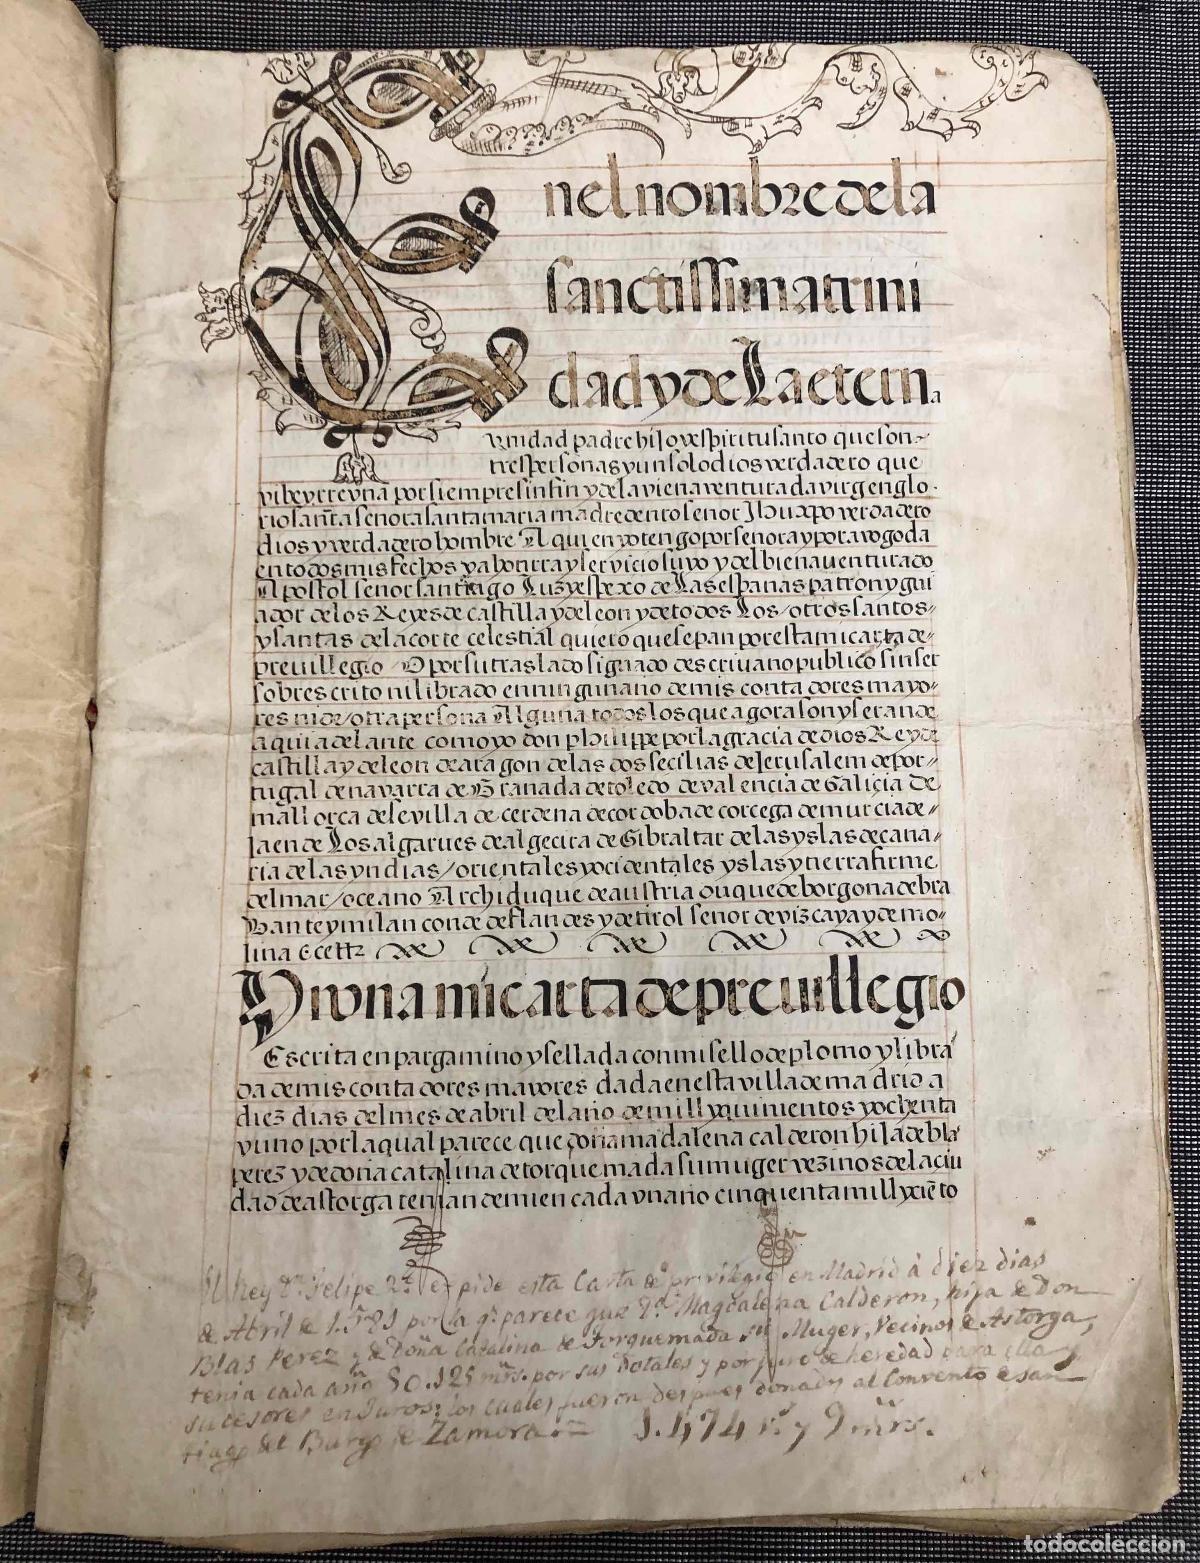 E nel nombre de la
sanctissima trini
dad y de La etern.a
vnidad padre hijo y espiritu santo que son
tres personas y un solo dios verdadero que
vibe y rreyna por siempre sin fin y de la vienaventurada virgen glo.
riosa nr̃a señora santa maria madre de nr̃o señor Jħu xp̃o verdadero
dios y verdadero hombre A quien yo tengo por señora y por avogada
en todos mis fechos y a honrra y servicio suyo y del bienaventurado
Apostol señor santiago Luz y espexo de Las españas patron y gui
ador de los Reyes de castilla y de leon y de todos Los otros santos
y santas de la corte celestial quiero que sepan por esta mi carta de
previllegio / O por su traslado signado de scrivano publico sin ser
sobrescrito ni librado en ningun año de mis contadores mayo-
res ni de otra persona Alguna todos los que agora son y seran de
aqui adelante como yo don phelippe por la gracia de dios Rey de
castilla y de leon de aragon de las dos secilias de Jerusalem de por-
tugal de navarra de Granada de toledo de valencia de Galicia de
mallorca de sevilla de cerdeña de cordoba de corcega de murcia de
Jaen de Los algarves de algecira de Gibraltar de las yslas de cana-
ria de las yndias / orientales y ocidentales yslas y tierra firme
del mar / oceano Archiduque de austria duque de borgoña de bra
vante y milan conde de flandes y de tirol señor de vizcaya y de mo-
lina Ecettz
Vi vna mi carta de previllegio
Escrita en pargamino y sellada con mi sello de plomo y libra
da de mis contadores mayores dada en esta villa de madrid a
diez dias del mes de abril del año de mill y quinientos y ochenta
y uno por la qual parece que doña madalena calderon hija de bla
perez y de doña catalina de torquemada su muger vezinos de la ciu
dad de astorga tenian de mi en cada vn año cinquenta mill y ciento
El Rey Dn. Felipe 2º expide esta Carta de privilegio en Madrid à diez dias
de Abril de 1581 por la q.e parece que Dª Magdalena Calderon, hija de Don
Blas Perez y de Doña Catalina de Torquemada su Muger, Vecinos de Astorga,
tenia cada año 50.125 mrs. por sus dotales y por juro de heredad para ella y
sucesores en Juros; los cuales fueron despues donados al Convento de San
tiago del Burgo de Zamora 1.474 rs. y 9 mrs.
todocoleccion